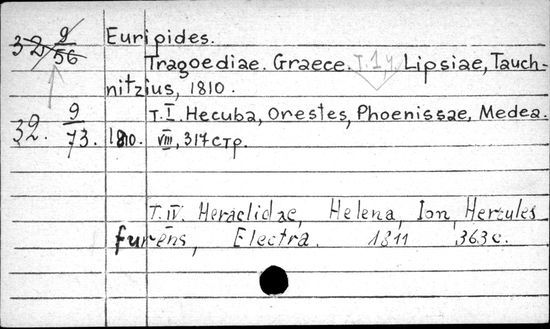 32 9/56 Euripides.
Tragoediae. Graece. T. 1 y Lipsiae, Tauch-
nitzius, 1810.
32. 9/73. 1810. T. I. Hecuba, Orestes, Phoenissae, Medea.
VIII, 317 стр.
T. IV. Heraclidae, Helena, Ion, Hercules
furens, Electra. 1811 363 с.